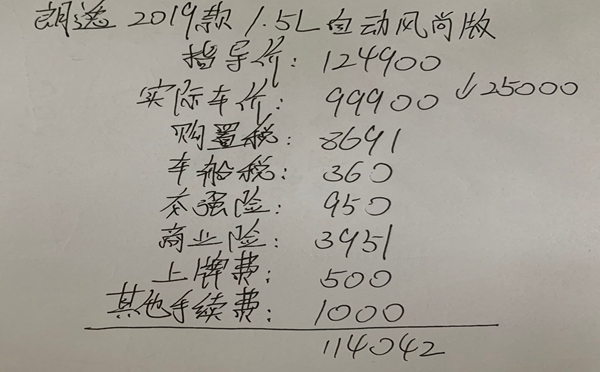 朗逸 2019款 1.5L自动风尚版
指导价: 124900
实际车价: 99900 ↓25000
购置税: 8691
车船税: 360
交强险: 950
商业险: 3951
上牌费: 500
其他手续费: 1000
114042